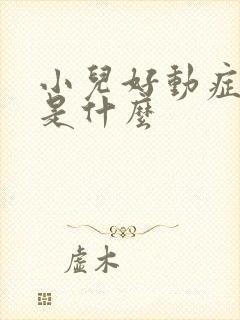 小兒好動症
是什麼
虛木